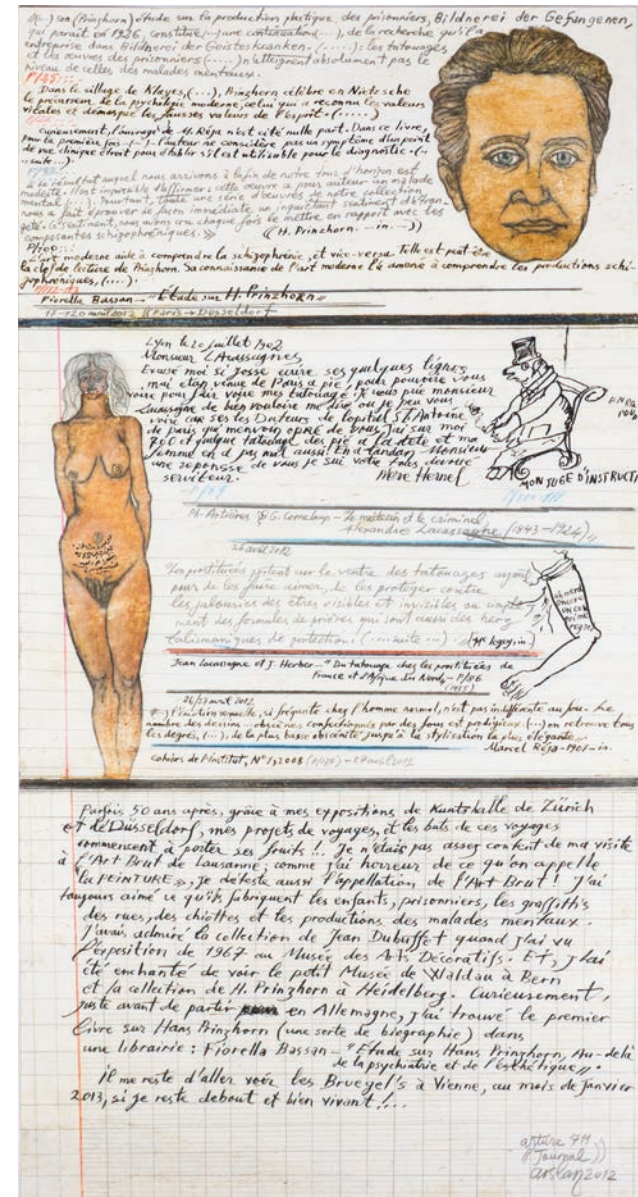 (...) son (Prinzhorn) étude sur la production plastique des prisonniers, Bildnerei der Gefangenen,
qui paraît en 1926, constitue (...) une continuation (...), de la recherche qu'il a
entreprise dans Bildnerei der Geisteskranken. (.....); les tatouages
et les œuvres des prisonniers (.....) n'atteignent absolument pas le
niveau de celles des malades mentaux.
Dans le village de Klages, (...), Prinzhorn célèbre en Nietzsche
le précurseur de la psychologie moderne, celui qui a reconnu les valeurs
vitales et démarqué les fausses valeurs de l'esprit. (.....)
curieusement, l'ouvrage de M. Réja n'est cité nulle part. Dans ce livre,
pour la première fois (...) l'auteur ne considère pas un symptôme d'un point
de vue clinique étroit pour établir s'il est utilisable pour le diagnostic. (..
..suite...).
Le résultat auquel nous arrivons à la fin de notre tour d'horizon est
modeste. Il est impossible d'affirmer: cette œuvre a pour auteur un malade
mental (...). Pourtant, toute une série d'œuvres de notre collection
nous a fait éprouver de façon immédiate un inquiétant sentiment d'étran-
geté. Ce sentiment, nous avons cru chaque fois le mettre en rapport avec les
composantes schizophréniques. »
((H. Prinzhorn. -- in. --))
P/100:::
L'art moderne aide à comprendre la schizophrénie, et vice-versa. Telle est peut-être
la clef de lecture de Prinzhorn. Sa connaissance de l'art moderne l'a amené à comprendre les productions schi-
zophréniques, (....).
Fiorella Bassan → "Etude sur H. Prinzhorn"
17-20 avril 2012 (Paris → Düsseldorf
Lyon le 20 juillet 1902
Monsieur LAcassagnes,
Excusé moi si Josse ecrire ses quelques lignes
mai etan venue de Paris a pie, pour pouvoire vous
voire pour fair voire mes tatouage. Je vous prie monsieur
Lacassagne de bien vouloire me dire ou je peu vous
voire car ses les Duteurs de lopital St Antoine
de paris qui menvoin opré de vous. Jai sur moi
700 et quelque tatouage des pié a la tete et ma
femme en a pas mal aussi. En atandan Monsieur
une reponsse de vous je sui votre tous devoué
serviteur.
MON JUGE D'INSTRUCTI
Ph. Artières § G. Corneloup - Le médecin et le criminel
Alexandre Lacassagne (1843-1924)"
26 avril 2012
"Les prostituées portent sur le ventre des tatouages ayant
pour de les faire aimer, de les protéger contre
les jalousies des êtres visibles et invisibles ou simple
ment des formules de prières qui sont aussi des
talismaniques de protection. (...suite...)
Jean Lacassagne et J. Herber → "Du tatouage chez les prostituées de
France et d'Afrique du Nord → P/86
(1935)
26/27 avril 2012
(...) l'émotion sexuelle, si fréquente chez l'homme normal, n'est pas indifférente au fou. Le
nombre des dessins obscènes confectionnés par des fous est prodigieux. (...) on retrouve tous
les degrés, (...), de la plus basse obscénité jusqu'à la stylisation la plus élégante.
Marcel Réja - 1901 - in.
Cahiers de l'Institut, N°1, 2008 - 27 avril 2012
Parfois 50 ans après, grâce à mes expositions de Kunsthalle de Zürich
et de Düsseldorf, mes projets de voyages, et les buts de ces voyages
commencent à porter ses fruits!! Je n'étais pas assez content de ma visite
à l'Art Brut de Lausanne; comme j'ai horreur de ce qu'on appelle
« la PEINTURE », je déteste aussi l'appellation de l'Art Brut! J'ai
toujours aimé ce qu'ils fabriquent les enfants, prisonniers, les graffitis
des rues, des chiottes et les productions des malades mentaux.
J'avais admiré la collection de Jean Dubuffet quand j'ai vu
l'exposition de 1967 au Musée des Arts Décoratifs. Et, j'ai
été enchanté de voir le petit Musée de Waldau à Bern
et la collection de H. Prinzhorn à Heidelberg. Curieusement,
juste avant de partir en Allemagne, j'ai trouvé le premier
livre sur Hans Prinzhorn (une sorte de biographie) dans
une librairie: Fiorella Bassan - "Etude sur Hans Prinzhorn, Au-delà
de la psychiatrie et de l'esthétique".
il me reste d'aller voir les Bruegel's à Vienne, au mois de janvier
2013, si je reste debout et bien vivant!...
arture 711
arslan 2012